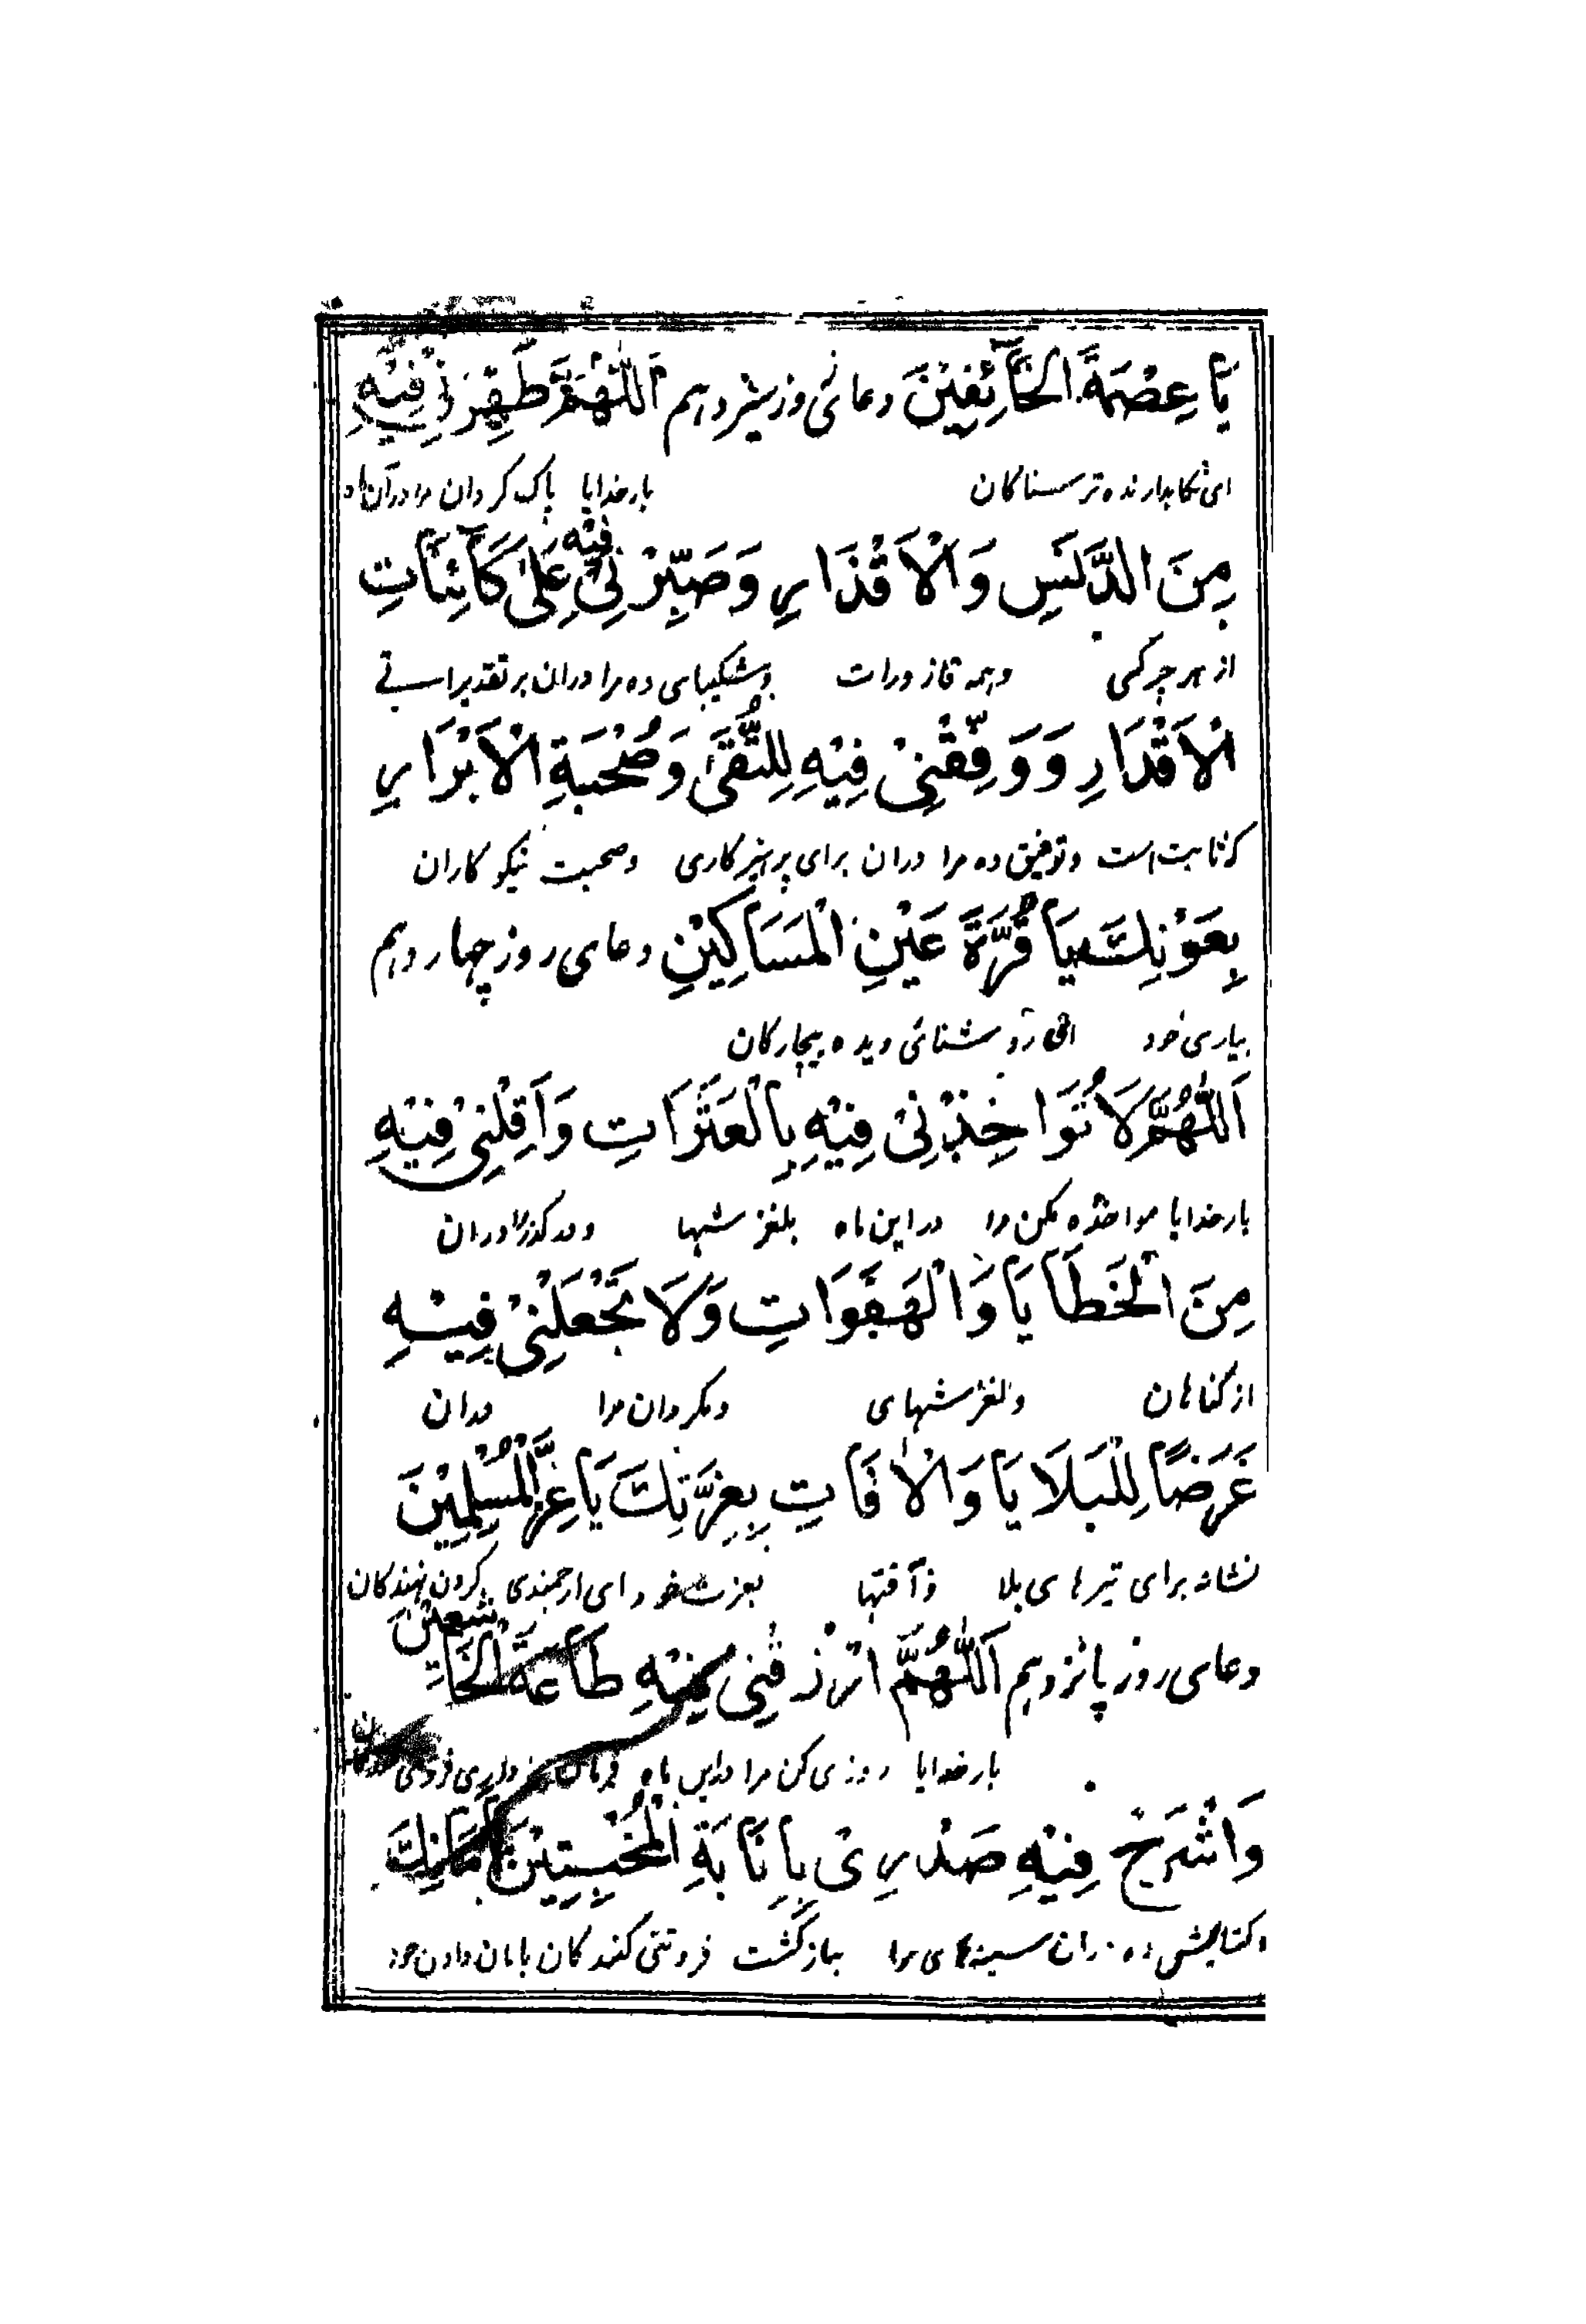 يَا عِصْمَةَ الْخَآئِفِيْنَ دعای روز سیزدهم اَللّٰهُمَّ طَهِّرْنِيْ فِيْهِ
ای نگاهدارنده ترسناکان بارخدایا پاک گردان مرا در آن ماه
مِنَ الدَّنَسِ وَالْاَقْذَارِ وَصَبِّرْنِيْ فِيْهِ عَلٰى كَآئِنَاتِ
از هر چرکی وهمه قاذورات وشکیبایی ده مرا دران بر تقدیراتی
الْاَقْدَارِ وَوَفِّقْنِيْ فِيْهِ لِلتُّقٰى وَصُحْبَةِ الْاَبْرَارِ
که ثابت است وتوفیق ده مرا دران برای پرهیزکاری وصحبت نیکو کاران
بِعَوْنِكَ يَا قُرَّةَ عَيْنِ الْمَسَاكِيْنِ دعای روز چهاردهم
بیاری خود ای روشنائی دیده بیچارگان
اَللّٰهُمَّ لَا تُوَاخِذْنِيْ فِيْهِ بِالْعَثَرَاتِ وَاَقِلْنِيْ فِيْهِ
بارخدایا مواخذه مکن مرا در این ماه بلغزشها ودرگذر مرا دران
مِنَ الْخَطَايَا وَالْهَفَوَاتِ وَلَا تَجْعَلْنِيْ فِيْهِ
از گناهان ولغزشهای ومگردان مرا دران
غَرَضًا لِلْبَلَايَا وَالْاٰفَاتِ بِعِزَّتِكَ يَا عِزَّ الْمُسْلِمِيْنَ
نشانه برای تیرهای بلا وآفتها بعزت خود ای ارجمندی گردن نهندگان
دعای روز پانزدهم اَللّٰهُمَّ ارْزُقْنِيْ فِيْهِ طَاعَةَ الْخَاشِعِيْنَ
بارخدایا روزی کن مرا دراین ماه فرمان
وَاشْرَحْ فِيْهِ صَدْرِيْ بِاِنَابَةِ الْمُخْبِتِيْنَ بِاَمَانِكَ
وگشایش ده دران سینهٔ مرا ببازگشت فروتنی کنندگان بامان دادن خود